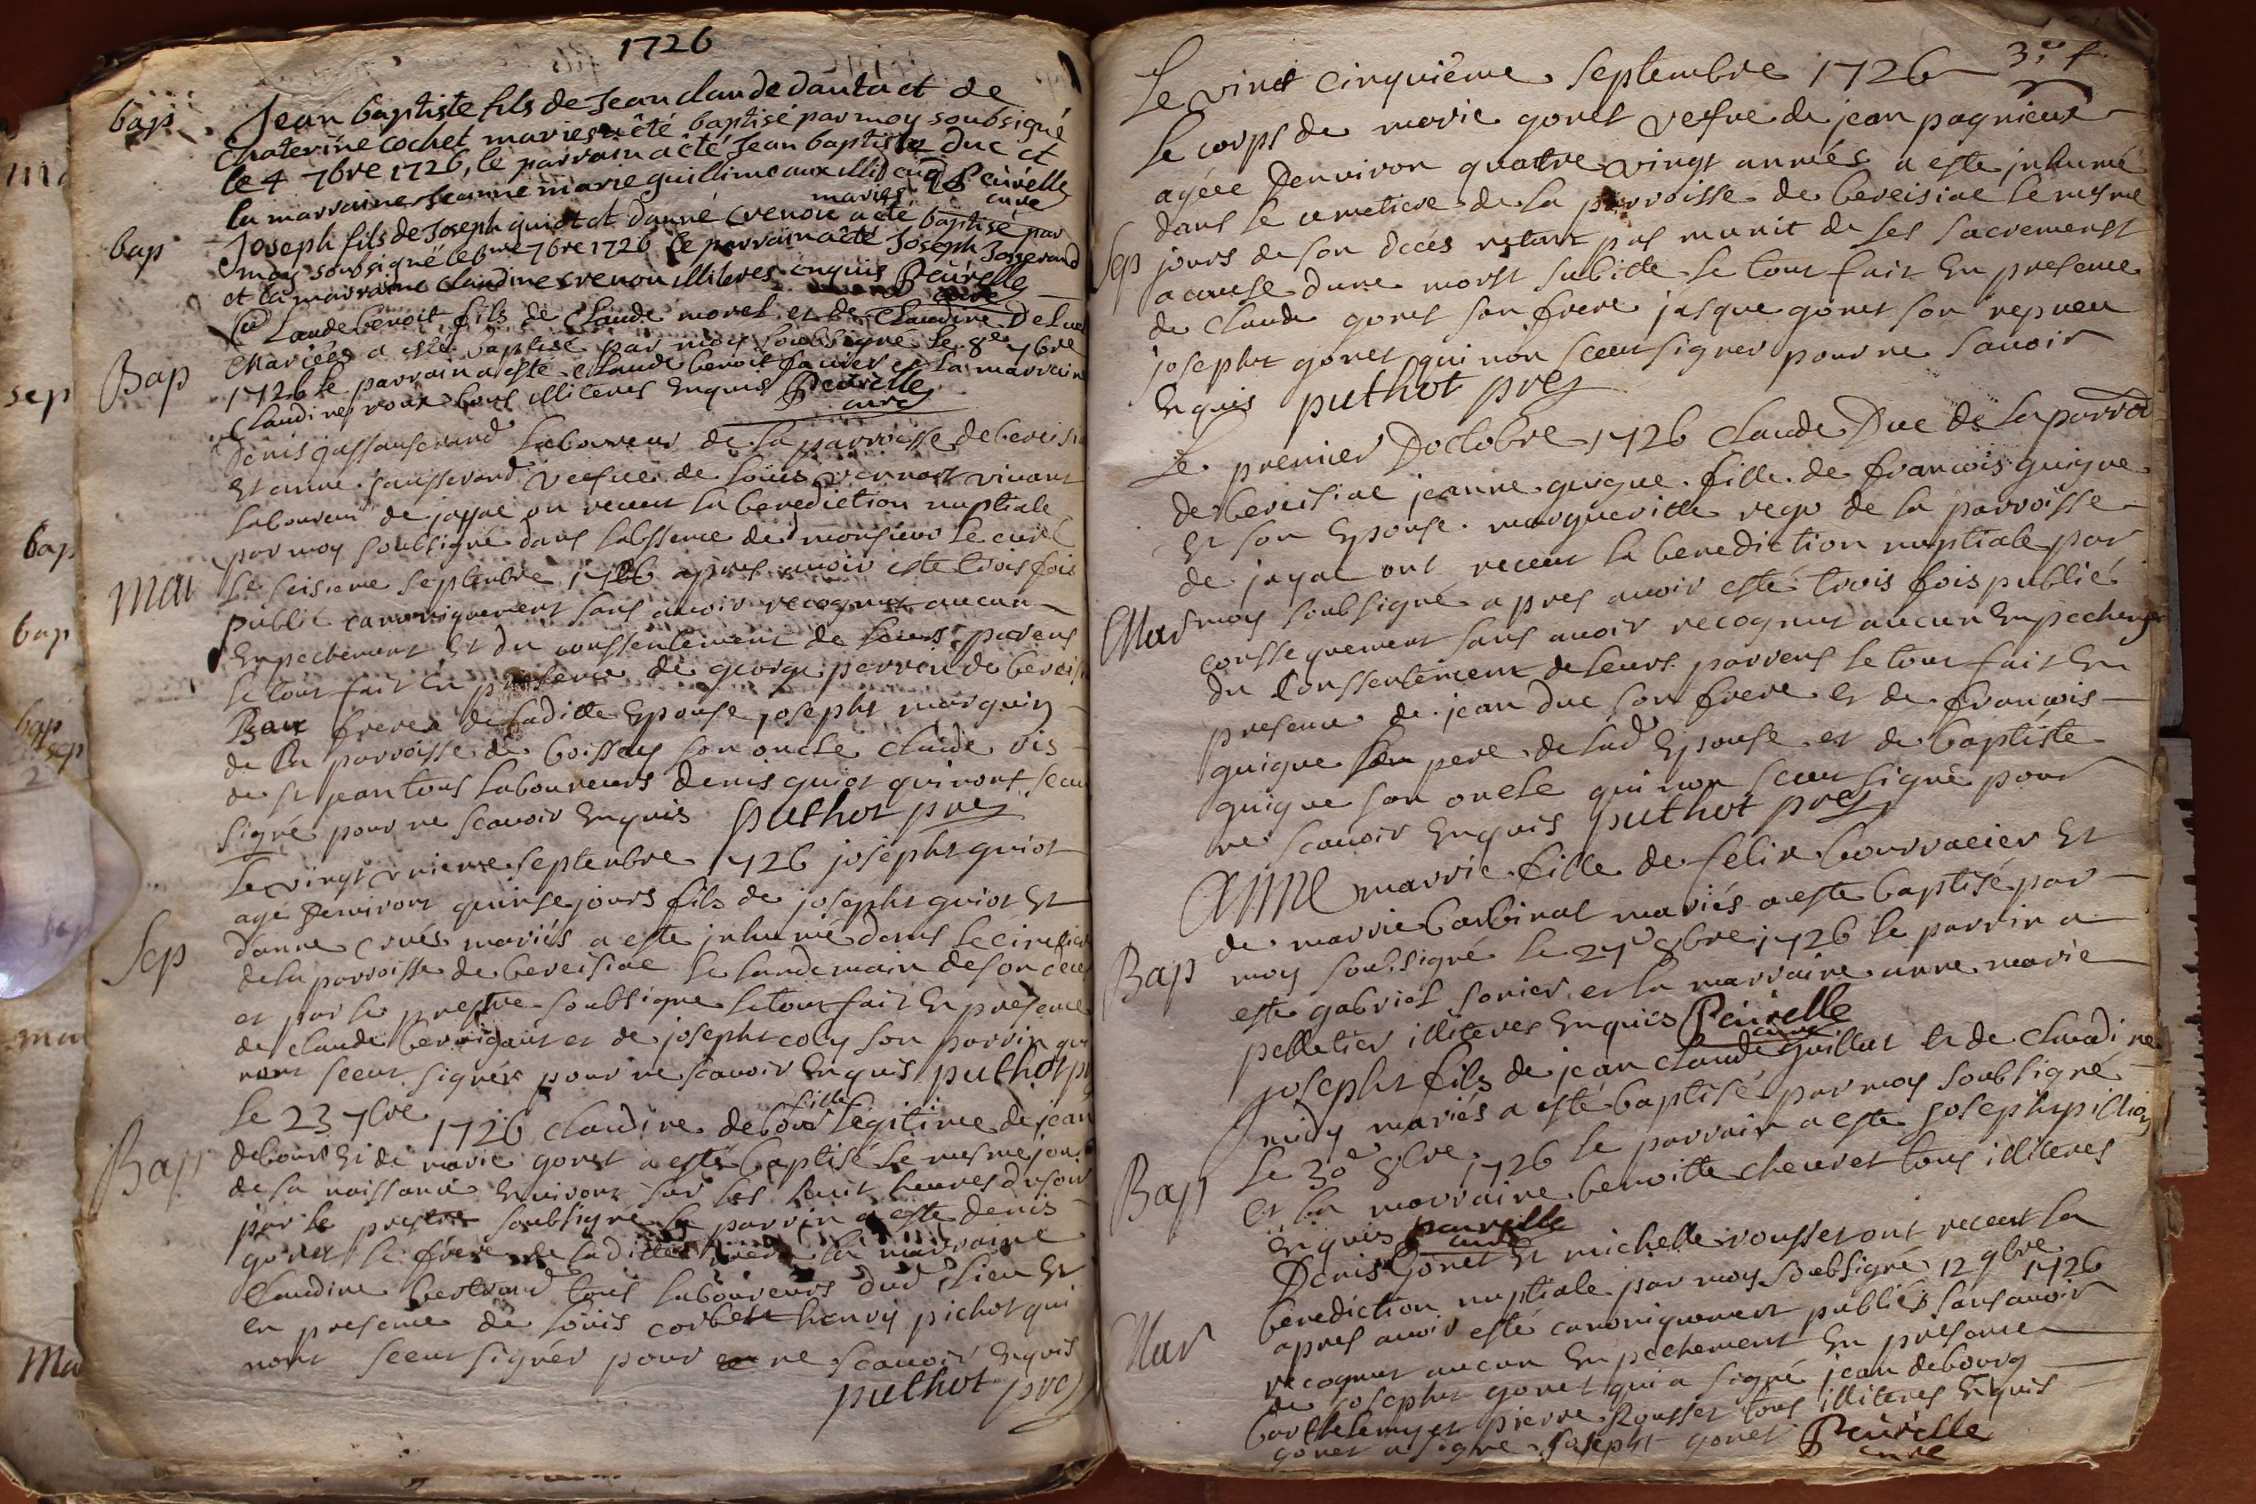 1726
bap
Jean baptiste fils de Jean claude dauta et de
Chaterine Cochet maries a êté baptisé par moy soubsigné
le 4 7bre 1726, le parrain a êté Jean baptiste Duc et
la marraine Jeanne marie guillime aux illi enq Peurelle
maries curé
bap
Joseph fils de Joseph quiot et danne Crenou a eté baptisé par
moy soubsigné le 7bre 1726 le parrain a êté Joseph Josserand
et la marraine Claudine crenou illiteres enquis Peurelle
curé
Claude benoit fils de Claude morel et de Claudine Deluc
Bap
Mariées a esté baptisé par moy soubsigné le 8e 7bre
1726 le parrain a esté Claude benoit et la marraine
Claudine roux tous illiteres Enquis Peurelle
curé
Denis Laboureur de la parroisse de bereisia
Et anne vesfue de Louis vernost vivant
Laboureur de on receut la benediction nuptiale
par moy soubsigné dans labssence de monsieur le curé
Mar
Le seisieme septembre 1726 apres avoir este trois fois
publié canoniquement sans avoir recognut aucun
Enpechement Et du conssentement de leurs parens
le tout fait En presence de george perrein de bereis
frere de laditte Epouse josepht marquin
de la parroisse de boissey son oncle Claude vis
de st jean tous laboureurs denis quiot qui nont sceu
signé pour ne scavoir Enquis puthot pre
Sep
Le vingt unieme septembre 1726 josepht quiot
agé denviront quinse jours fils de josepht quiot Et
danne mariés a este inhumé dans le cimetiere
de la parroisse de bereisiae le landemain de son deces
et par le prestre soubsigne le tout fait En presence
de Claude et de josepht coly son parrin qui
nont sceut signér pour ne scavoir Enquis puthot p
Bap
le 23 7bre 1726 claudine debour fille legitime de jean
debour Et de marie gonet a esté baptisé le mesme jour
de sa naissance Environt sur les huit heures du soir
par le prestre soubsigné le parrin a este denis
gonet le frere de laditte la marraine
Claudine bertrand tous laboureurs dud lieu Et
en presence de Louis corbet henry pichot qui
nont sceut signér pour ne scavoir Enquis
puthot pre
3e f
Le vint cinquième septembre 1726
le corps de marie gonet vesve de jean pagnieux
agéee Denviron quatre vingt annés a este inhumé
dans le cemetiere de la parroisse de bereisiae le mesme
Sep
jours de son deces nestant pas munit de ses sacrements
a cause dune mort subitte le tout fait En presence
de Claude gonet son frere jasque gonet son nepveu
josepht gonet qui non sceut signer pour ne savoir
Enquis puthot pre
Le premier Doctobre 1726 Claude Duc de la parroi
de bereisiae jeanne guigue fille de francois guigue
Et son Epouse margueritte de la parroisse
de jayac ont receut la benediction nuptiale par
Mar
moy soubsigné apres avoir esté trois fois publié
conssequement sans avoir recognut aucun Enpechem
du Conssentement de leurs parrens le tout fait En
presence de jean duc son frere et de francois
guigue pere de lad Epouse et de baptiste
guigue son oncle qui non sceut signé pour
ne scavoir Enquis puthot pre
Anne marrie fille de felix bourracier Et
de marrie barbinat mariés a este baptisé par
Bap
moy soubsigné le 27e 8bre 1726 le parrin a
este gabriel sonier et la marraine anne marie
pelletier illiteres Enquis Peurelle
curé
josepht fils de jean claude guillat Et de claudine
midy mariés a esté baptisé par moy soubsigné
Bap
Le 30e 8bre 1726 le parrain a este josepht pichon
Et la marraine benoitte chevret tous illiteres
Enquis Peurelle
curé
Denis Gonet Et michelle rousset ont receut la
Mar
benediction nuptiale par moy soubsigné 12 9bre 1726
apres avoir esté canoniquement publiés sans avoir
recognut aucun Enpechement En presence
de josepht gonet qui a signé jean debourg
barthelemy et pierre Rousset tous illiteres Enquis
gonet a signé Josepht gonet Peurelle
curé
sep
bap
bap
bap
sep
2
mar
Ma